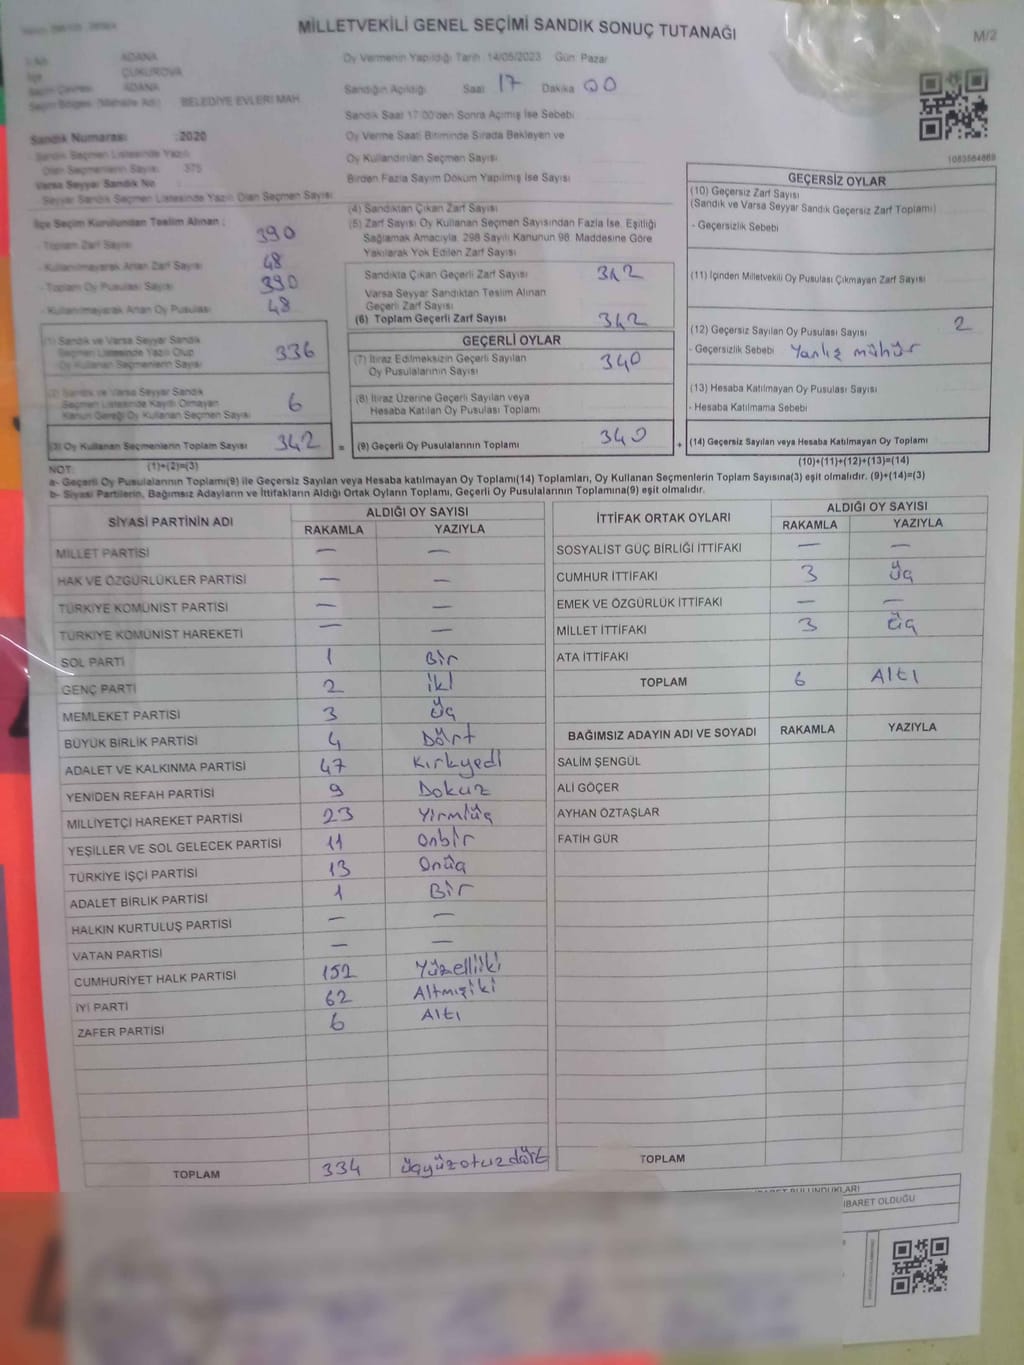 MİLLETVEKİLİ GENEL SEÇİMİ SANDIK SONUÇ TUTANAĞI
M/2
ADANA
ÇUKUROVA
ADANA
BELEDİYE EVLERİ MAH.
Sandık Numarası :2020
- Sandık Seçmen Listesinde Yazılı
Olan Seçmenlerin Sayısı 375
Varsa Seyyar Sandık No
Seyyar Sandık Seçmen Listesinde Yazılı Olan Seçmen Sayısı
Oy Vermenin Yapıldığı Tarih :14/05/2023 Gün: Pazar
Sandığın Açıldığı Saat 17 Dakika 00
Sandık Saat 17:00'den Sonra Açımış İse Sebebi
Oy Verme Saati Bitiminde Sırada Bekleyen ve
Oy Kullandırılan Seçmen Sayısı
Birden Fazla Sayım Döküm Yapılmış İse Sayısı
1083564869
İlçe Seçim Kurulundan Teslim Alınan :
- Toplam Zarf Sayısı 390
- Kullanılmayarak Artan Zarf Sayısı 48
- Toplam Oy Pusulası Sayısı 390
- Kullanılmayarak Artan Oy Pusulası 48
(1) Sandık ve Varsa Seyyar Sandık
Seçmen Listesinde Yazılı Olup
Oy Kullanan Seçmenlerin Sayısı 336
(2) Sandık ve Varsa Seyyar Sandık
Seçmen Listesinde Kayıtlı Olmayan
Kanun Gereği Oy Kullanan Seçmen Sayısı 6
(3) Oy Kullanan Seçmenlerin Toplam Sayısı 342 =
(1)+(2)=(3)
(4) Sandıktan Çıkan Zarf Sayısı
(5) Zarf Sayısı Oy Kullanan Seçmen Sayısından Fazla İse, Eşitliği
Sağlamak Amacıyla, 298 Sayılı Kanunun 98. Maddesine Göre
Yakılarak Yok Edilen Zarf Sayısı
Sandıkta Çıkan Geçerli Zarf Sayısı 342
Varsa Seyyar Sandıktan Teslim Alınan
Geçerli Zarf Sayısı
(6) Toplam Geçerli Zarf Sayısı 342
GEÇERLİ OYLAR
(7) İtiraz Edilmeksizin Geçerli Sayılan
Oy Pusulalarının Sayısı 340
(8) İtiraz Üzerine Geçerli Sayılan veya
Hesaba Katılan Oy Pusulası Toplamı
(9) Geçerli Oy Pusulalarının Toplamı 340 +
GEÇERSİZ OYLAR
(10) Geçersiz Zarf Sayısı
(Sandık ve Varsa Seyyar Sandık Geçersiz Zarf Toplamı)
- Geçersizlik Sebebi
(11) İçinden Milletvekili Oy Pusulası Çıkmayan Zarf Sayısı
(12) Geçersiz Sayılan Oy Pusulası Sayısı 2
- Geçersizlik Sebebi Yanlış mühür
(13) Hesaba Katılmayan Oy Pusulası Sayısı
- Hesaba Katılmama Sebebi
(14) Geçersiz Sayılan veya Hesaba Katılmayan Oy Toplamı
(10)+(11)+(12)+(13)=(14)
NOT:
a- Geçerli Oy Pusulalarının Toplamı(9) ile Geçersiz Sayılan veya Hesaba katılmayan Oy Toplamı(14) Toplamları, Oy Kullanan Seçmenlerin Toplam Sayısına(3) eşit olmalıdır. (9)+(14)=(3)
b- Siyasi Partilerin, Bağımsız Adayların ve İttifakların Aldığı Ortak Oyların Toplamı, Geçerli Oy Pusulalarının Toplamına(9) eşit olmalıdır.
SİYASİ PARTİNİN ADI ALDIĞI OY SAYISI
RAKAMLA YAZIYLA
MİLLET PARTİSİ — —
HAK VE ÖZGÜRLÜKLER PARTİSİ — —
TÜRKİYE KOMÜNİST PARTİSİ — —
TÜRKİYE KOMÜNİST HAREKETİ — —
SOL PARTİ 1 Bir
GENÇ PARTİ 2 iki
MEMLEKET PARTİSİ 3 Üç
BÜYÜK BİRLİK PARTİSİ 4 Dört
ADALET VE KALKINMA PARTİSİ 47 Kırkyedi
YENİDEN REFAH PARTİSİ 9 Dokuz
MİLLİYETÇİ HAREKET PARTİSİ 23 Yirmiüç
YEŞİLLER VE SOL GELECEK PARTİSİ 11 Onbir
TÜRKİYE İŞÇİ PARTİSİ 13 Onüç
ADALET BİRLİK PARTİSİ 1 Bir
HALKIN KURTULUŞ PARTİSİ — —
VATAN PARTİSİ — —
CUMHURİYET HALK PARTİSİ 152 Yüzelliiki
İYİ PARTİ 62 Altmışiki
ZAFER PARTİSİ 6 Altı
TOPLAM 334 üçyüzotuzdört
İTTİFAK ORTAK OYLARI ALDIĞI OY SAYISI
RAKAMLA YAZIYLA
SOSYALİST GÜÇ BİRLİĞİ İTTİFAKI — —
CUMHUR İTTİFAKI 3 Üç
EMEK VE ÖZGÜRLÜK İTTİFAKI — —
MİLLET İTTİFAKI 3 Üç
ATA İTTİFAKI
TOPLAM 6 Altı
BAĞIMSIZ ADAYIN ADI VE SOYADI RAKAMLA YAZIYLA
SALİM ŞENGÜL
ALİ GÖÇER
AYHAN ÖZTAŞLAR
FATİH GÜR
TOPLAM
BULUNDUKLARI
İBARET OLDUĞU